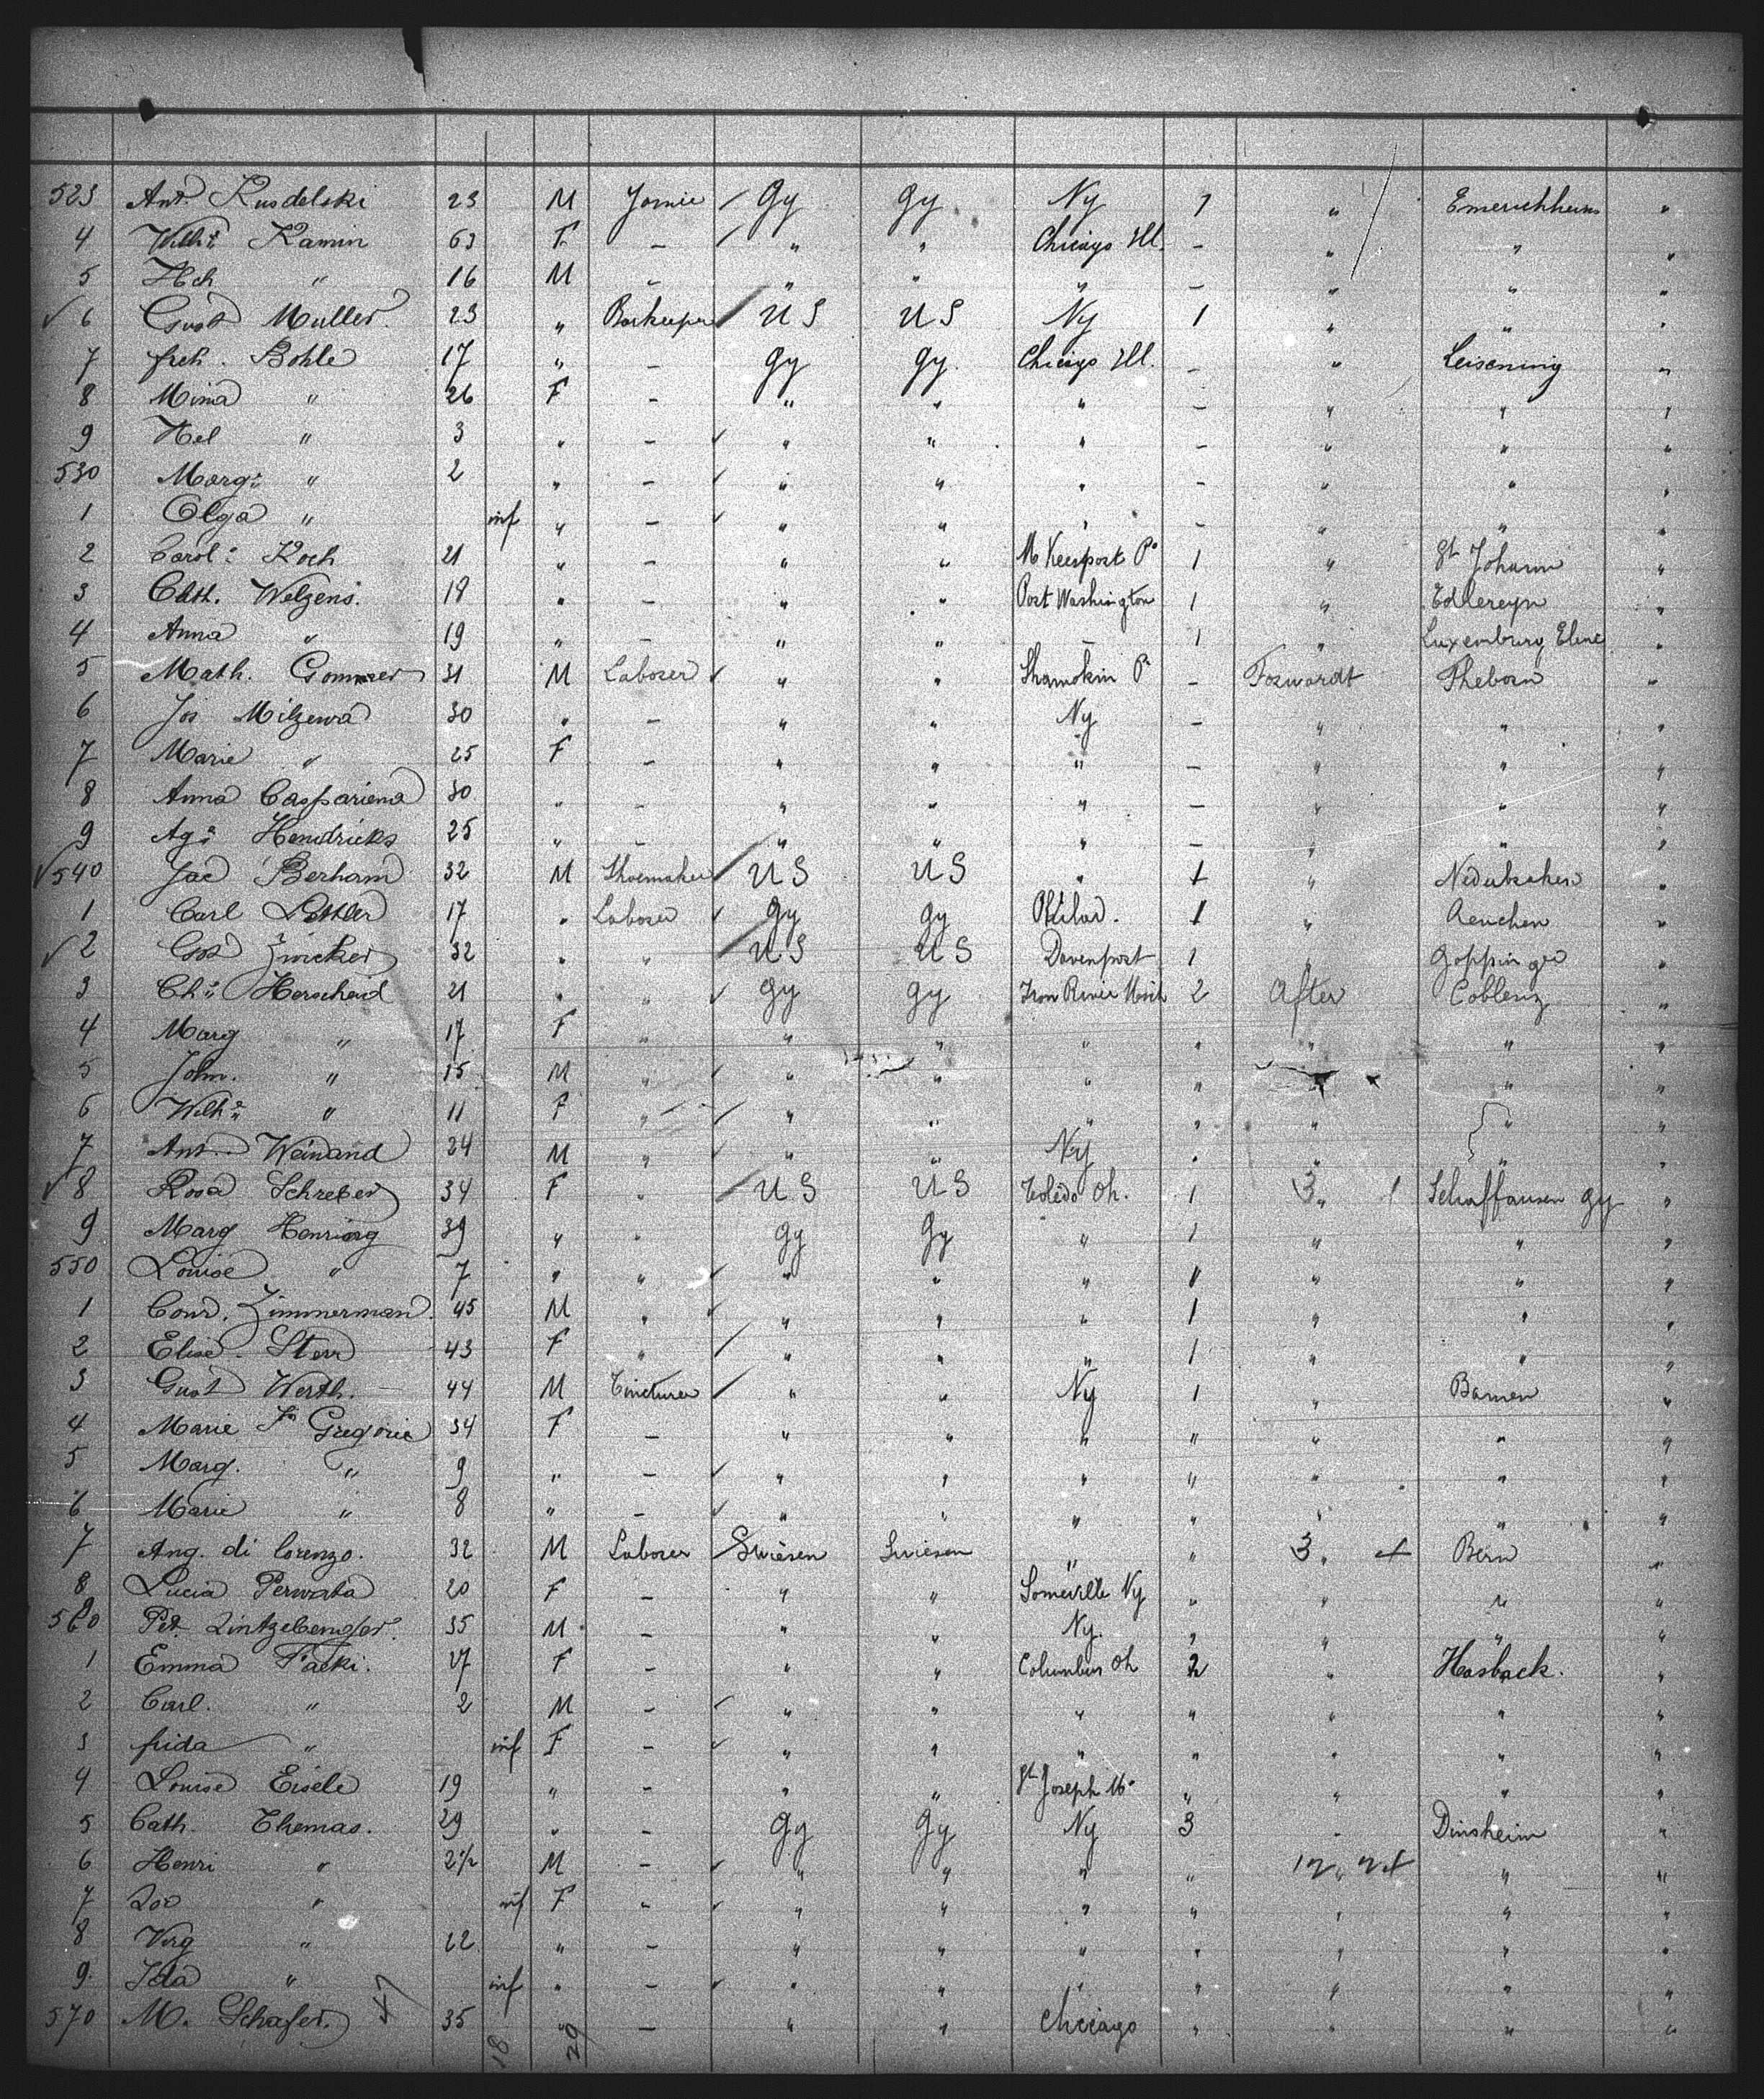 523 Ant. Kusdelski 23 M Gy Gy Ny 1 " Emerichheim "
4 Wilh. Kamin 63 F - " " Chicago Ill. - " " "
5 Hch " 16 M - " " " - " " "
6 Gust Muller. 23 " Barkeeper U S U S Ny 1 " " "
7 freh. Bohle 17 " - Gy Gy. Chicago Ill. - " Leisening "
8 Mina " 26 F - " " " - " " "
9 Hel " 3 " - " " " - " " "
530 Marg. " 2 " - " " " - " " "
1 Olga " inf " - " " " - " " "
2 Carol. Koch 21 " - " " Mc Keesport Pa 1 " St Johann "
3 Cath. Welzens. 18 " - " " Port Washington 1 " "
4 Anna " 19 " - " " - 1 " Luxemburg "
5 Math. Gommer 31 M Laborer " " Shamokin Pa - Forwardt Theborn "
6 Jos Milzewa 30 " - " " Ny - " " "
7 Marie " 25 F - " " " - " " "
8 Anna Caspariena 30 " - " " " - " " "
9 Ag. Hendricks 25 " - " " " - " " "
540 Jac Berham 32 M Shoemaker U S U S " 1 " "
1 Carl 17 " Laborer Gy Gy Philad. 1 " Aeuchen "
2 Gos Zwicker 32 " " U S U S Davenport 1 " Goppinger "
3 Ch. Herscheid 21 " " Gy Gy Iron River Mich 2 After Coblenz "
4 Marg " 17 F " " " " " " " "
5 John. " 15 M " " " " " " "
6 Wilh. " 11 F " " " " " " "
7 Ant. Weinand 24 M " " " Ny " " " "
8 Rosa Schreber 34 F " U S U S Toledo Oh. 1 3 " 1 Schaffausen Gy "
9 Marg Henriorg 39 " " Gy Gy " 1 " " "
550 Louise " 7 " " " " " 1 " " "
1 Conr. Zimmerman. 45 M " " " " 1 " " "
2 Elise Sterr 43 F " " " " 1 " " "
3 Gust Werth. 44 M Tincturer " " Ny 1 " Barmen "
4 Marie Gregorie 34 F - " " " " " " "
5 Marg. " 9 " - " " " " " " "
6 Marie " 8 " - " " " " " " "
7 Ang. di Lorenzo. 32 M Laborer Swiesen Swiesen " " 3 " + Bern "
8 Lucia Perwata 20 F - " " Someville Ny " " " "
9
560 Pet. 35 M - " " Ny. " " " "
1 Emma Facki. 27 F - " " Columbus Oh 2 " Hasback. "
2 Carl. " 2 M - " " " " " " "
3 frida " inf F - " " " " " " "
4 Louise Eisele 19 " - " " St Joseph Mo " " " "
5 Cath. Themas. 29 " - Gy Gy Ny 3 - Dinsheim "
6 Henri " 2½ M - " " " " " "
7 " inf F - " " " " " " "
8 Virg " 22 " - " " " " " " "
9. Ida " inf " - " " " " " " "
570 M. Schafer. 47 35 " - " " Chicago " " " "
18 29